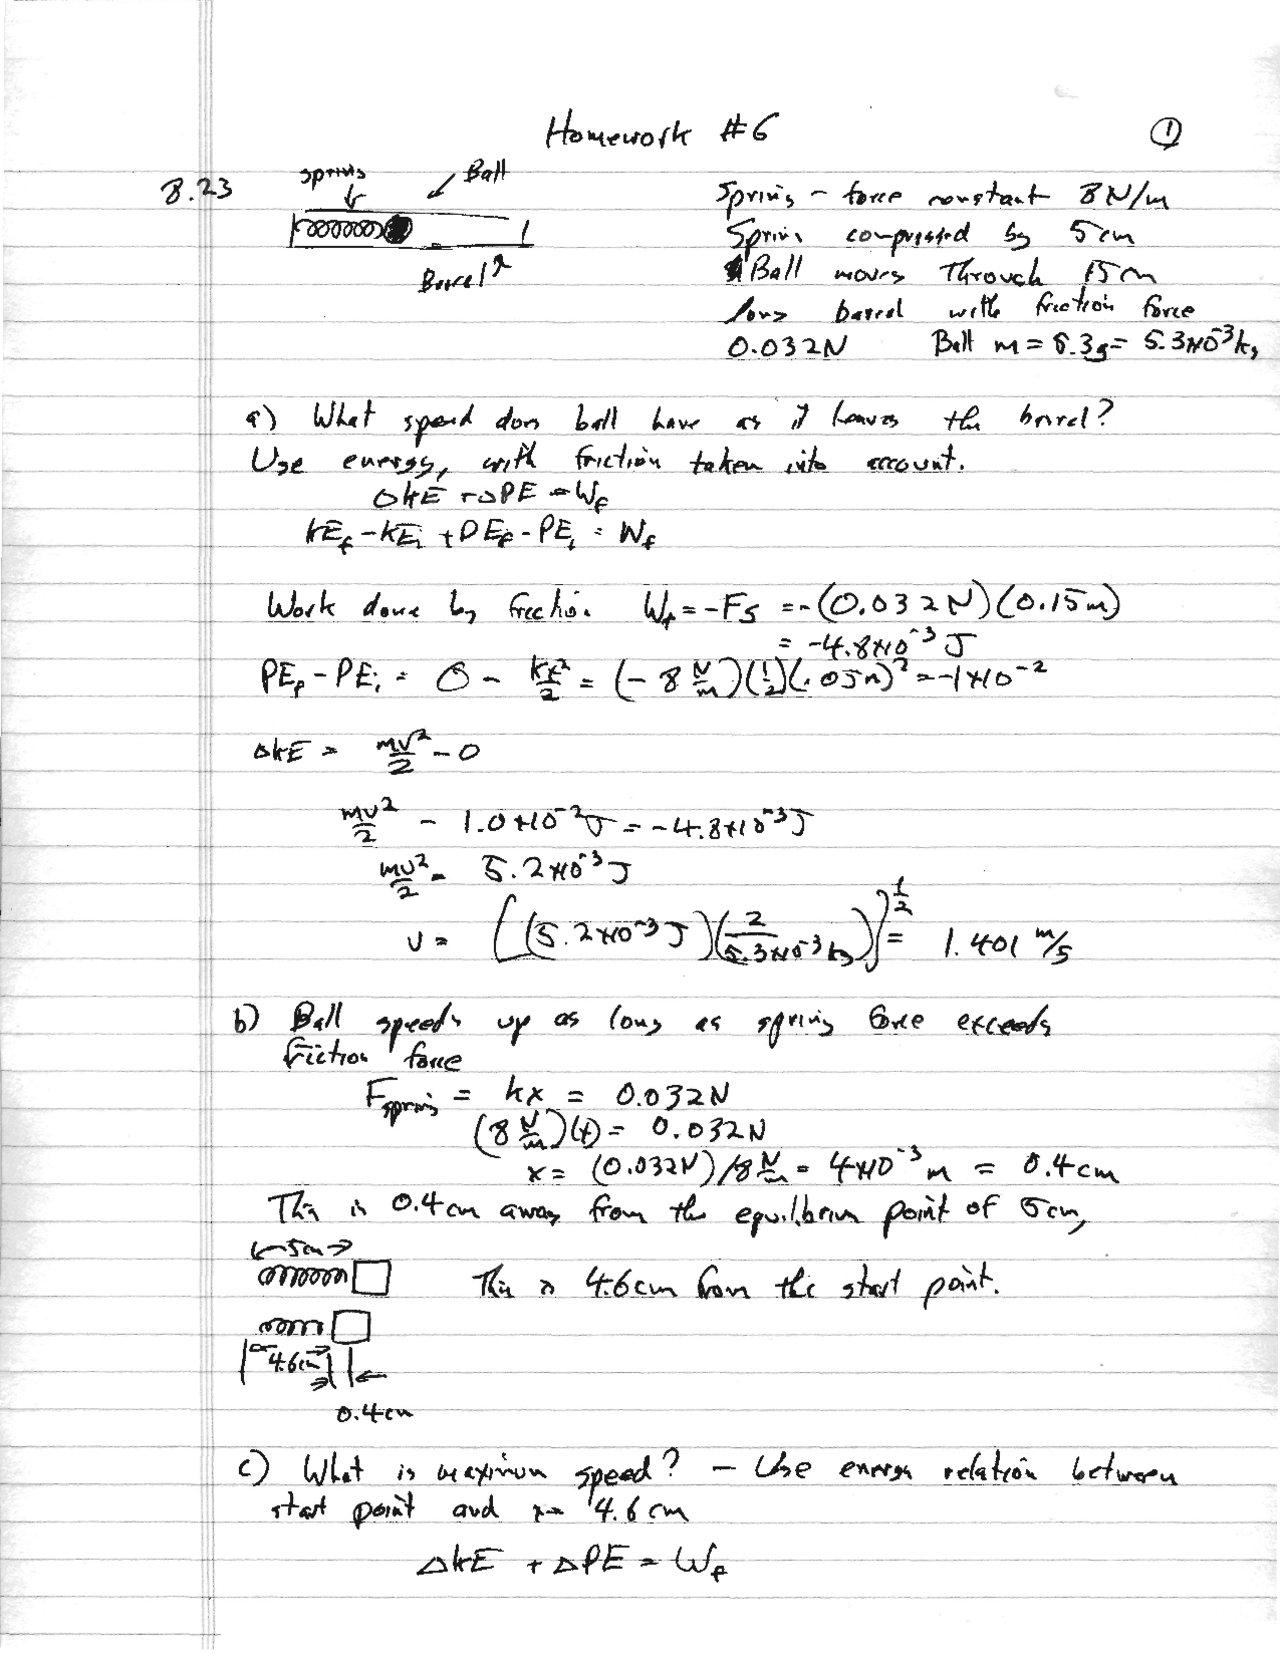 Homework #6
①
8.23
spring
Ball
Barrel
Spring - force constant 8 N/m
Spring compressed by 5 cm
Ball moves through 15 cm
long barrel with friction force
0.032 N Ball m = 5.3g = 5.3×10⁻³ kg
a) What speed does ball have as it leaves the barrel?
Use energy, with friction taken into account.
ΔKE + ΔPE = W_f
KE_f - KE_i + PE_f - PE_i = W_f
Work done by friction W_f = -Fs = -(0.032 N)(0.15 m)
= -4.8×10⁻³ J
PE_f - PE_i = 0 - kx²/2 = (-8 N/m)(1/2)(.05m)² = -1×10⁻²
ΔKE = mv²/2 - 0
mv²/2 - 1.0×10⁻² J = -4.8×10⁻³ J
mv²/2 = 5.2×10⁻³ J
v = [(5.2×10⁻³ J)(2/5.3×10⁻³ kg)]^1/2 = 1.401 m/s
b) Ball speeds up as long as spring force exceeds
friction force
F_spring = kx = 0.032 N
(8 N/m)(x) = 0.032 N
x = (0.032 N)/8 N/m = 4×10⁻³ m = 0.4 cm
This is 0.4 cm away from the equilibrium point of 5 cm,
5 cm
This is 4.6 cm from the start point.
4.6 cm
0.4 cm
c) What is maximum speed? - Use energy relation between
start point and x = 4.6 cm
ΔKE + ΔPE = W_f